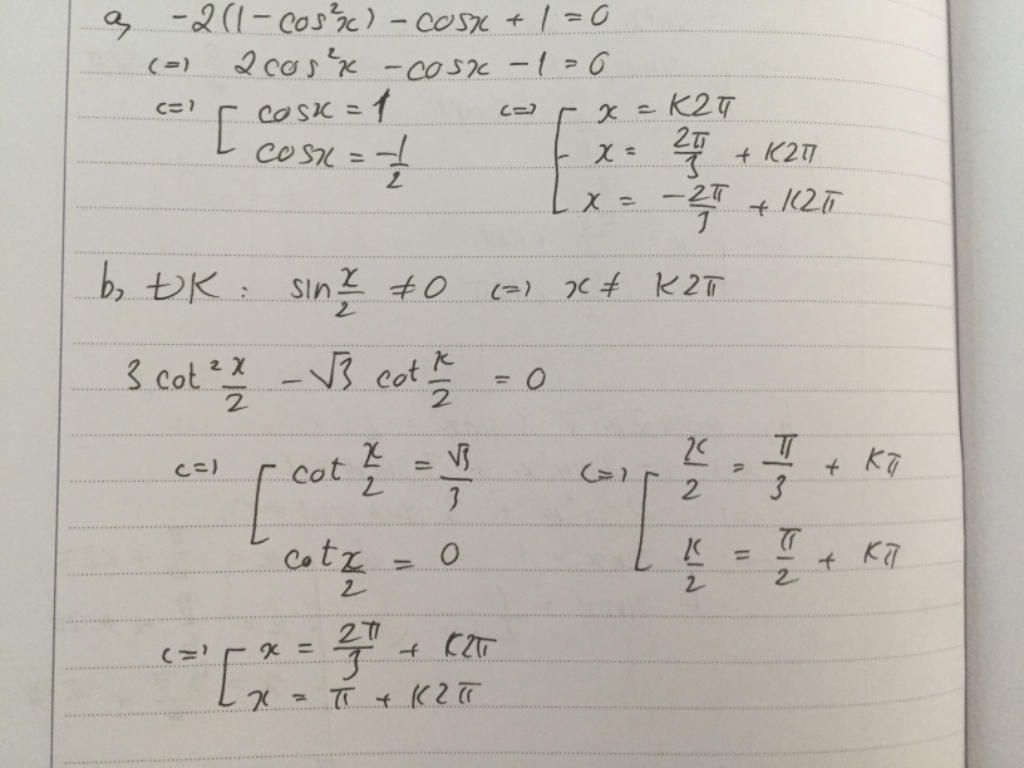 a, -2(1 - cos²x) - cosx + 1 = 0
(=) 2cos²x - cosx - 1 = 0
(=) [ cosx = 1 (=) [ x = K2π
cosx = -1/2 x = 2π/3 + K2π
x = -2π/3 + K2π
b, ĐK: sin x/2 ≠ 0 (=) x ≠ K2π
3 cot² x/2 - √3 cot x/2 = 0
(=) [ cot x/2 = √3/3 (=) [ x/2 = π/3 + Kπ
cot x/2 = 0 x/2 = π/2 + Kπ
(=) [ x = 2π/3 + K2π
x = π + K2π